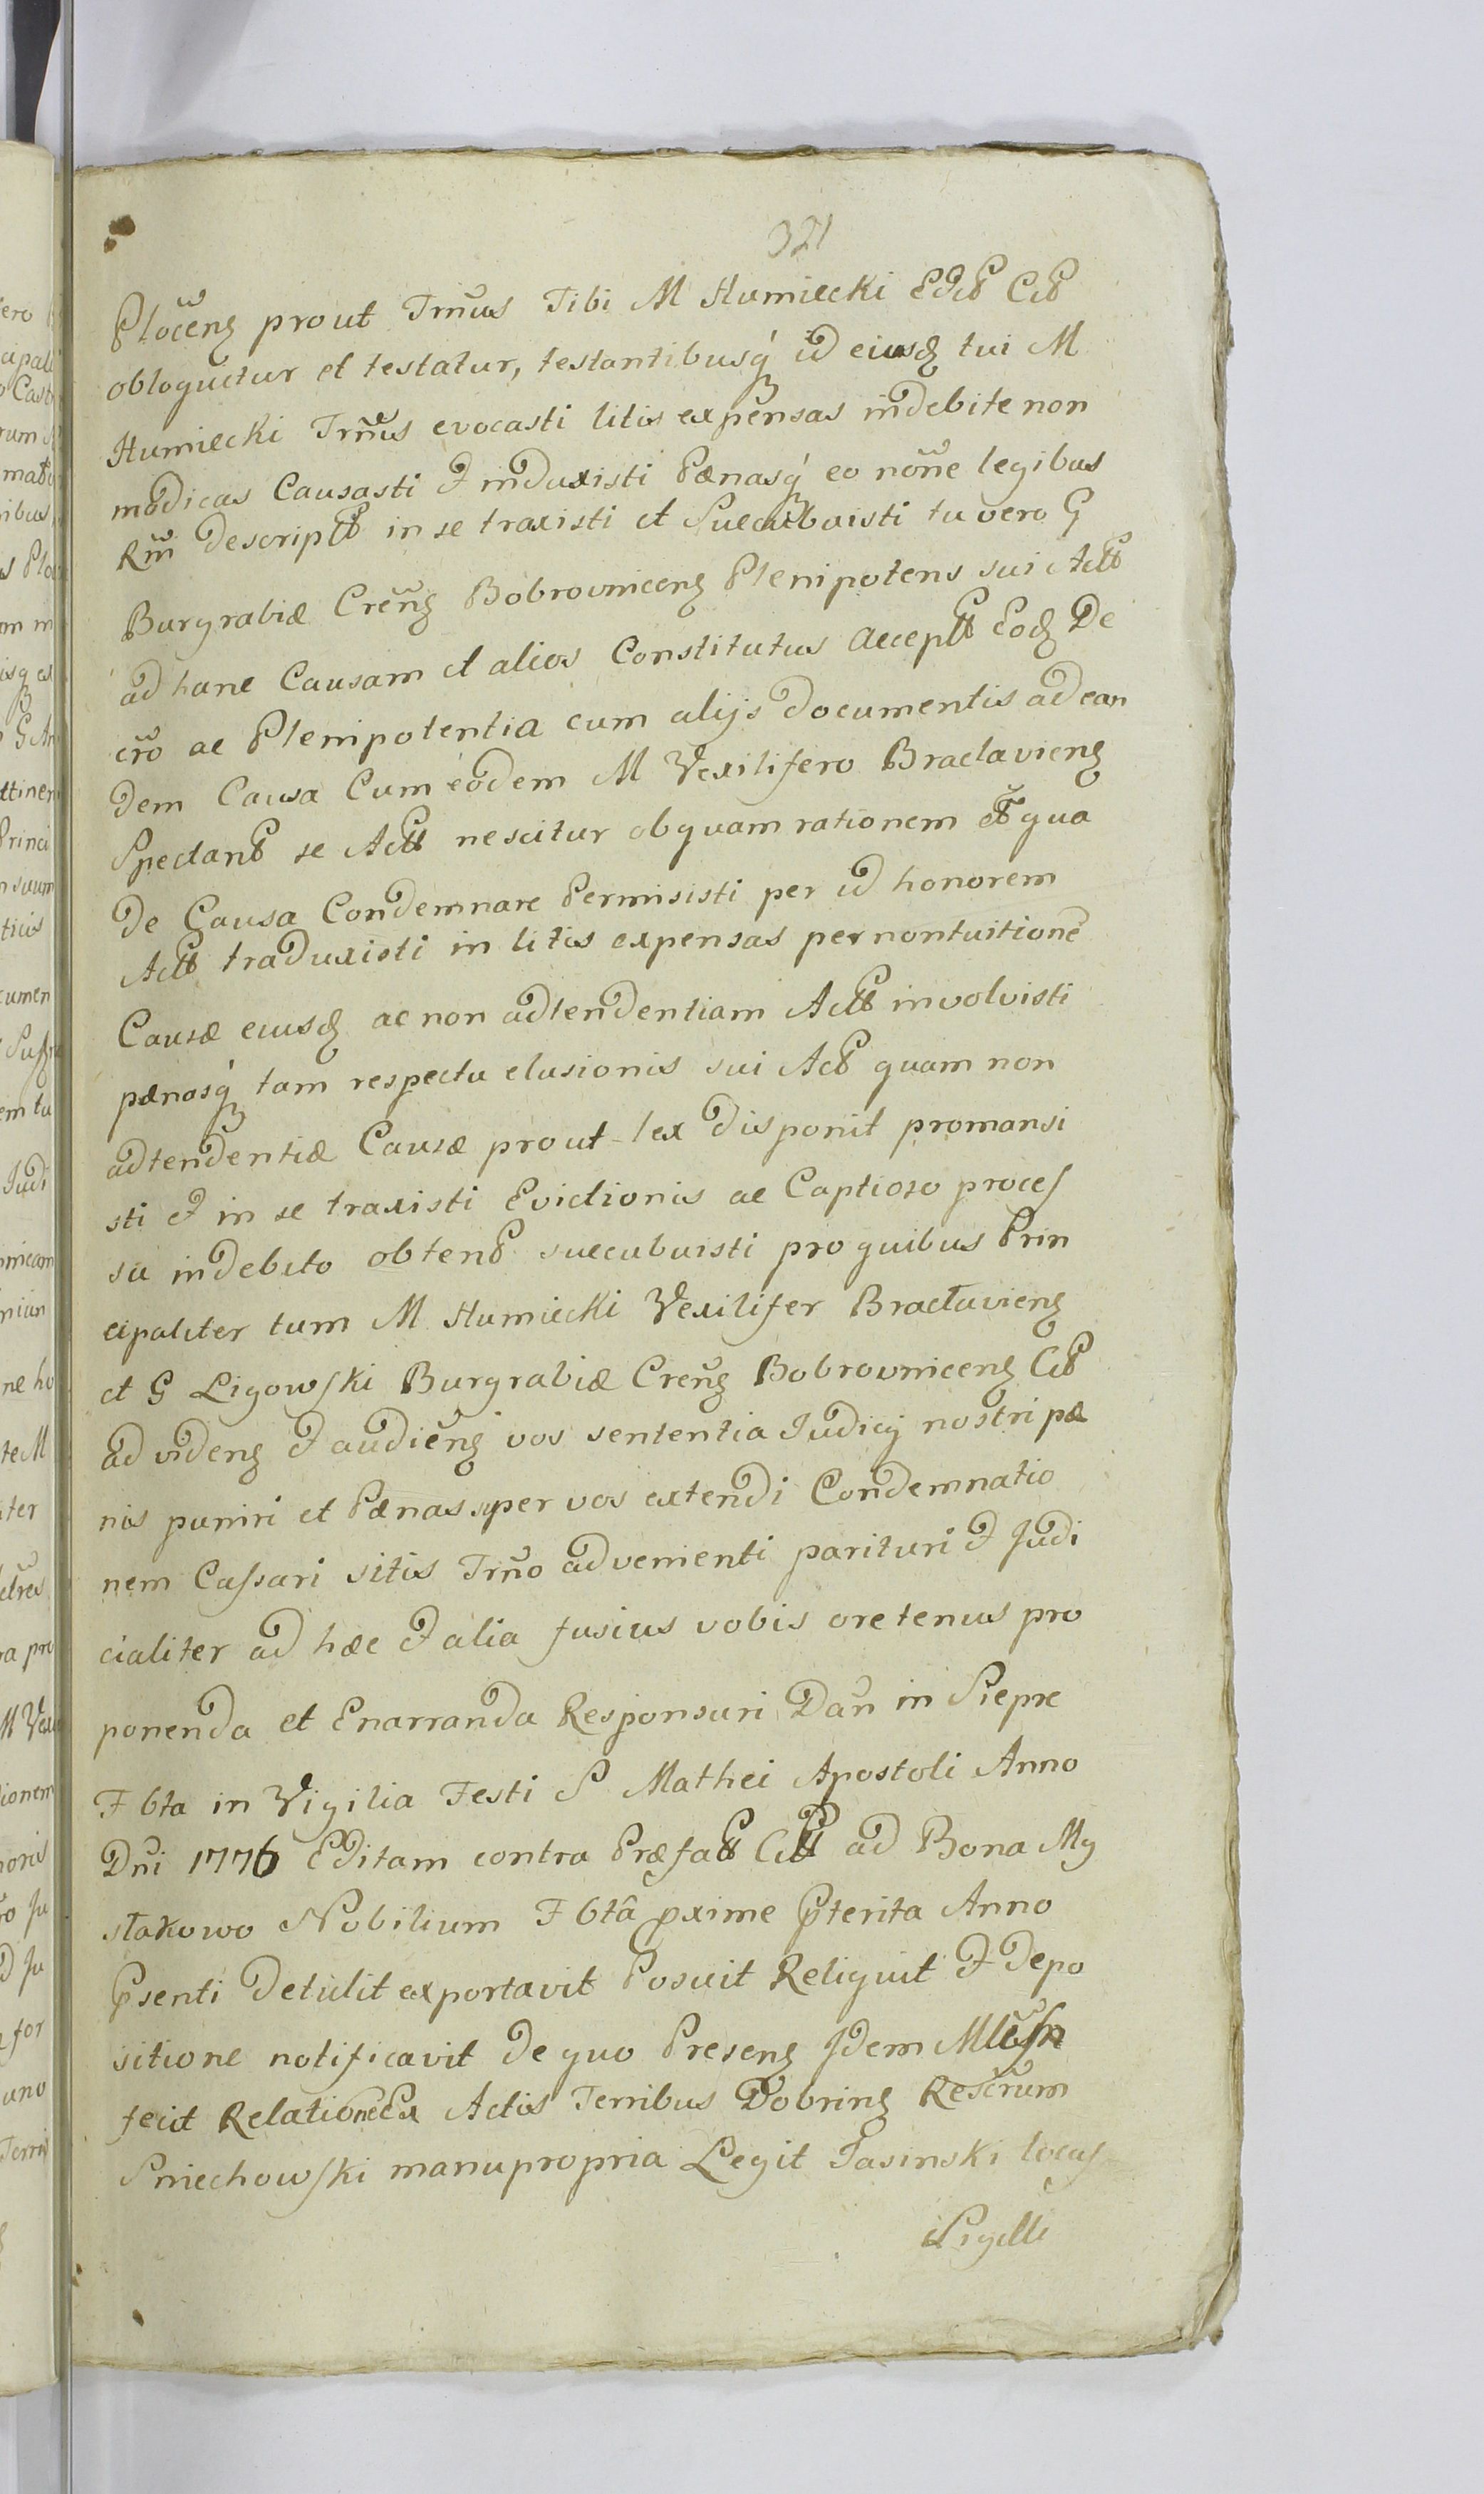 321
Płöceng prout Trm̃us Tibi M Humiecki
obloquitur et testatur, testantibusq́ id eiusd tui M
Humiecki Trm̃us evocasti litis expensas indebite non
modicas Causasti & induxisti Pænasq́ eo nom̃e legibus
Rm̃ descript in se traxisti et Succubuisti tu vero G
Burgrabiæ Creñg Bobrovniceng Plenipotens sui Act
ad hanc Causam et alios Constitutus accept Eod De
crõ ac Plenipotentia cum alijs documentis ad ean
dem Causa Cum eodem M Vexilifero Braclavieng
Spectant se Act nescitur ob quam rationem et qua
de Causa Condemnare Permisisti per id honorem
Act traduxisti in litis expensas per nontuitionē
Causæ eiusd ac non adtendentiam Act involvisti
pænasq́ tam respectu elusionis sui Act quam non
adtendentiæ Causæ prout lex disponit promansi
sti & in se traxisti Evictionis ac Captioso proces
su indebito obtent succubuisti pro quibus Prin
cipaliter tum M Humiecki Vexilifer Braclavieng
et G Ligowski Burgrabiæ Creñg Bobrovniceng Cit
ad videng & audieng vos sententia Judicij nostri pæ
nis puniri et Pænas super vos extendi Condemnatio
nem Cassari sitis Trño advenienti parituri & Judi
cialiter ad hæc & alia fusius vobis oretenus pro
ponenda et Enarranda Responsuri Dañ in Siepre
F 6ta in Vigilia Festi S Mathei Apostoli Anno
Dñi 1776 Editam contra Præfat Cit ad Bona My
stakowo Nobilium F 6tâ pxime Pterita Anno
Psenti detulit exportavit Posuit Reliquit & depo
sitione notificavit de quo Preseng Jdem
fecit Relationē Ex Actis Terribus Dobring Rescrũm
Sniechowski manupropria Legit Jasinski locus
Sigilli